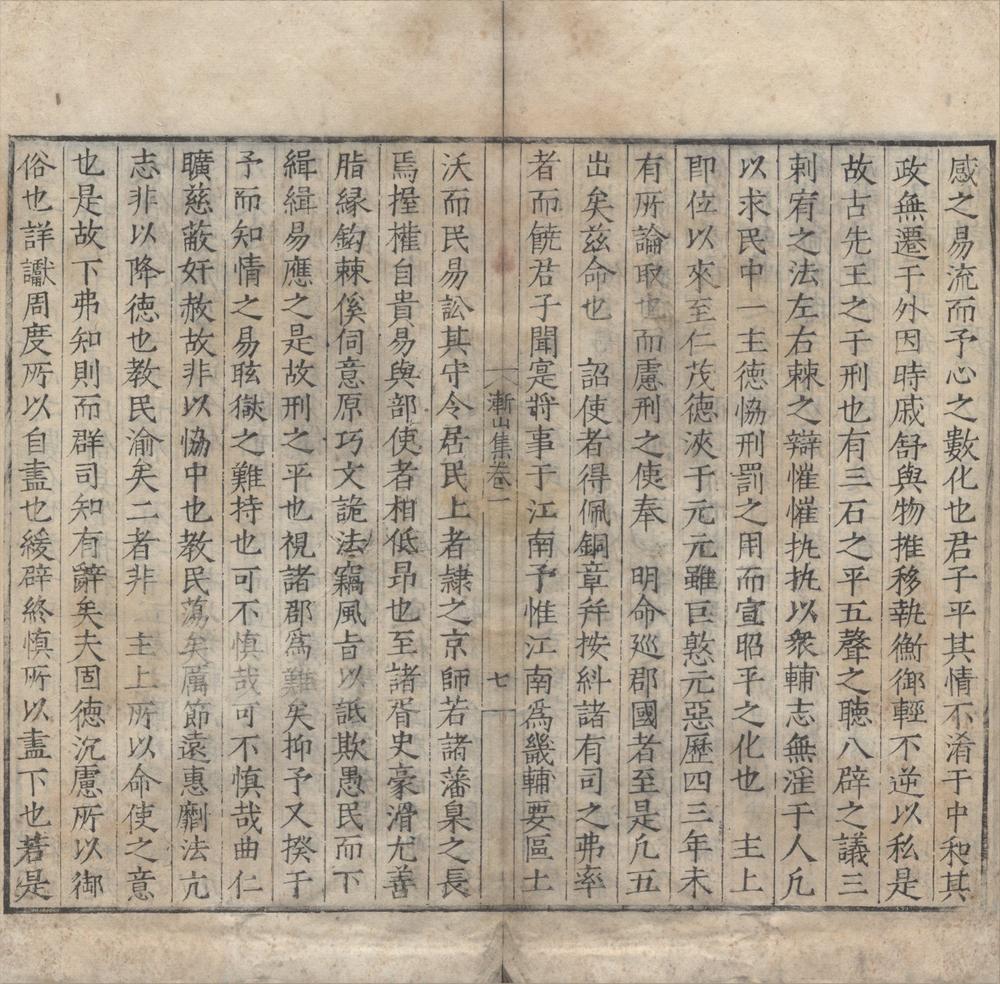 感之易流而予心之數化也君子平其情不淆于中和其
政無遷于外因時戚舒與物推移執衡御輕不逆以私是
故古先王之于刑也有三石之平五聲之聽八辟之議三
刺宥之法左右棘之辯慛慛执执以衆輔志無淫于人凡
以求民中一主德恊刑罰之用而宣昭平之化也　主上
即位以來至仁茂德浹于元元雖巨憝元惡歷四三年未
有所論取也而慮刑之使奉　明命巡郡國者至是凡五
出矣茲命也　詔使者得佩銅章并按糾諸有司之弗率
者而饒君子聞寔將事于江南予惟江南爲畿輔要區土
漸山集卷一
七
沃而民易訟其守令居民上者隷之京師若諸藩臬之長
焉握權自貴易與部使者相低昂也至諸胥史豪滑尤善
脂縁鈎棘傒伺意原巧文詭法竊風旨以詆欺愚民而下
緝緝易應之是故刑之平也視諸郡爲難矣抑予又揆于
予而知情之易眩獄之難持也可不慎哉可不慎哉曲仁
曠慈蔽奸赦故非以恊中也教民蕩矣厲節遠惠劘法亢
志非以降德也教民渝矣二者非　主上所以命使之意
也是故下弗知則而群司知有辭矣夫固德沉慮所以御
俗也詳讞周度所以自盡也緩辟終慎所以盡下也若是